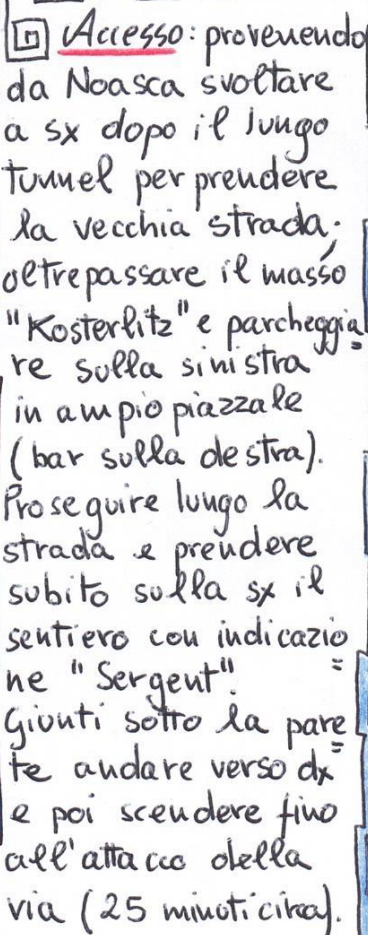 Accesso: provenendo
da Noasca svoltare
a sx dopo il lungo
tunnel per prendere
la vecchia strada;
oltrepassare il masso
"Kosterlitz" e parcheggia=
re sulla sinistra
in ampio piazzale
(bar sulla destra).
Proseguire lungo la
strada e prendere
subito sulla sx il
sentiero con indicazio=
ne "Sergent".
Giunti sotto la pare=
te andare verso dx
e poi scendere fino
all'attacco della
via (25 minuti circa).